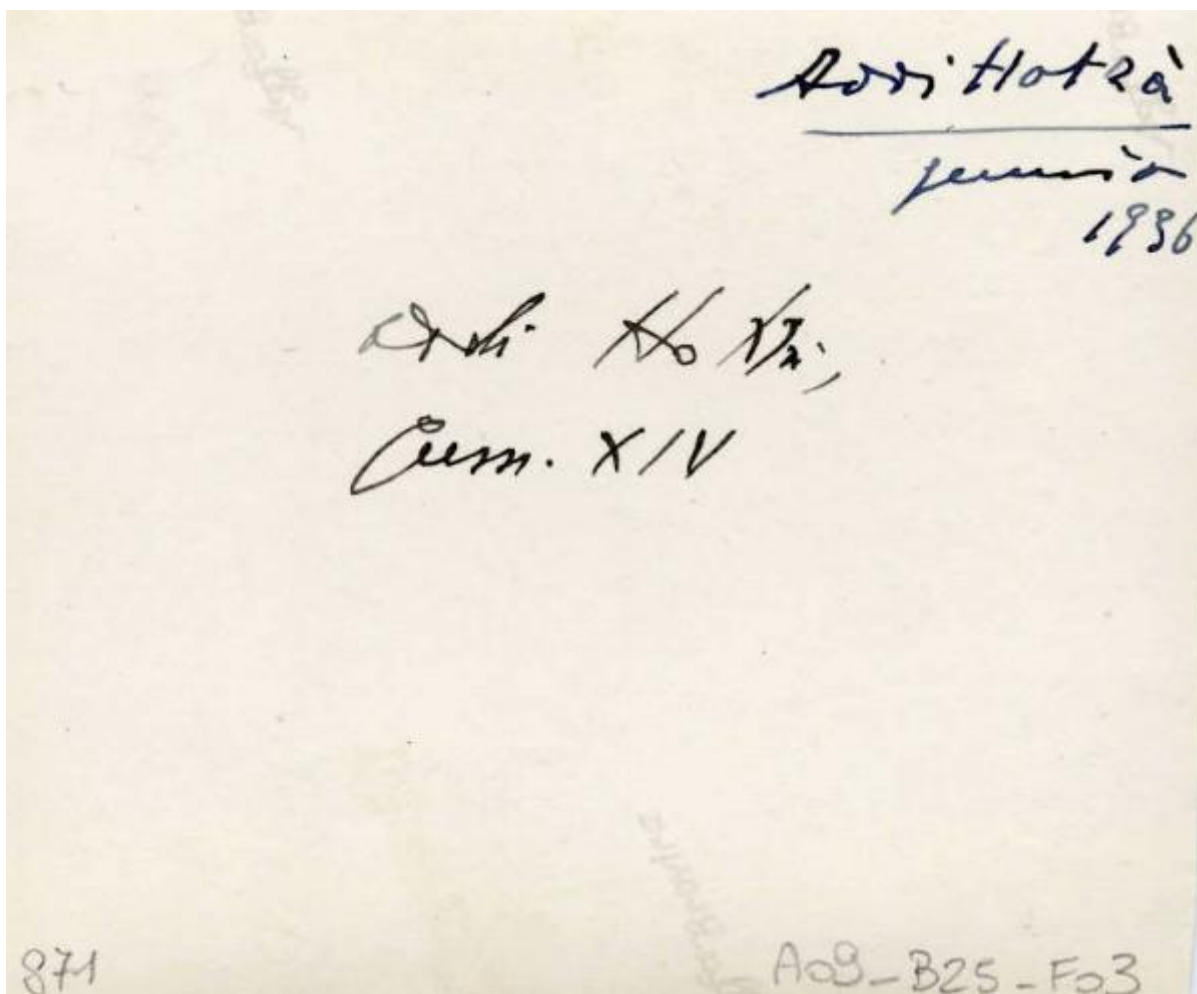 Addi Hotzà
gennaio
1936
Addi Hotzà,
Genn. XIV
871
A09_B25_F03